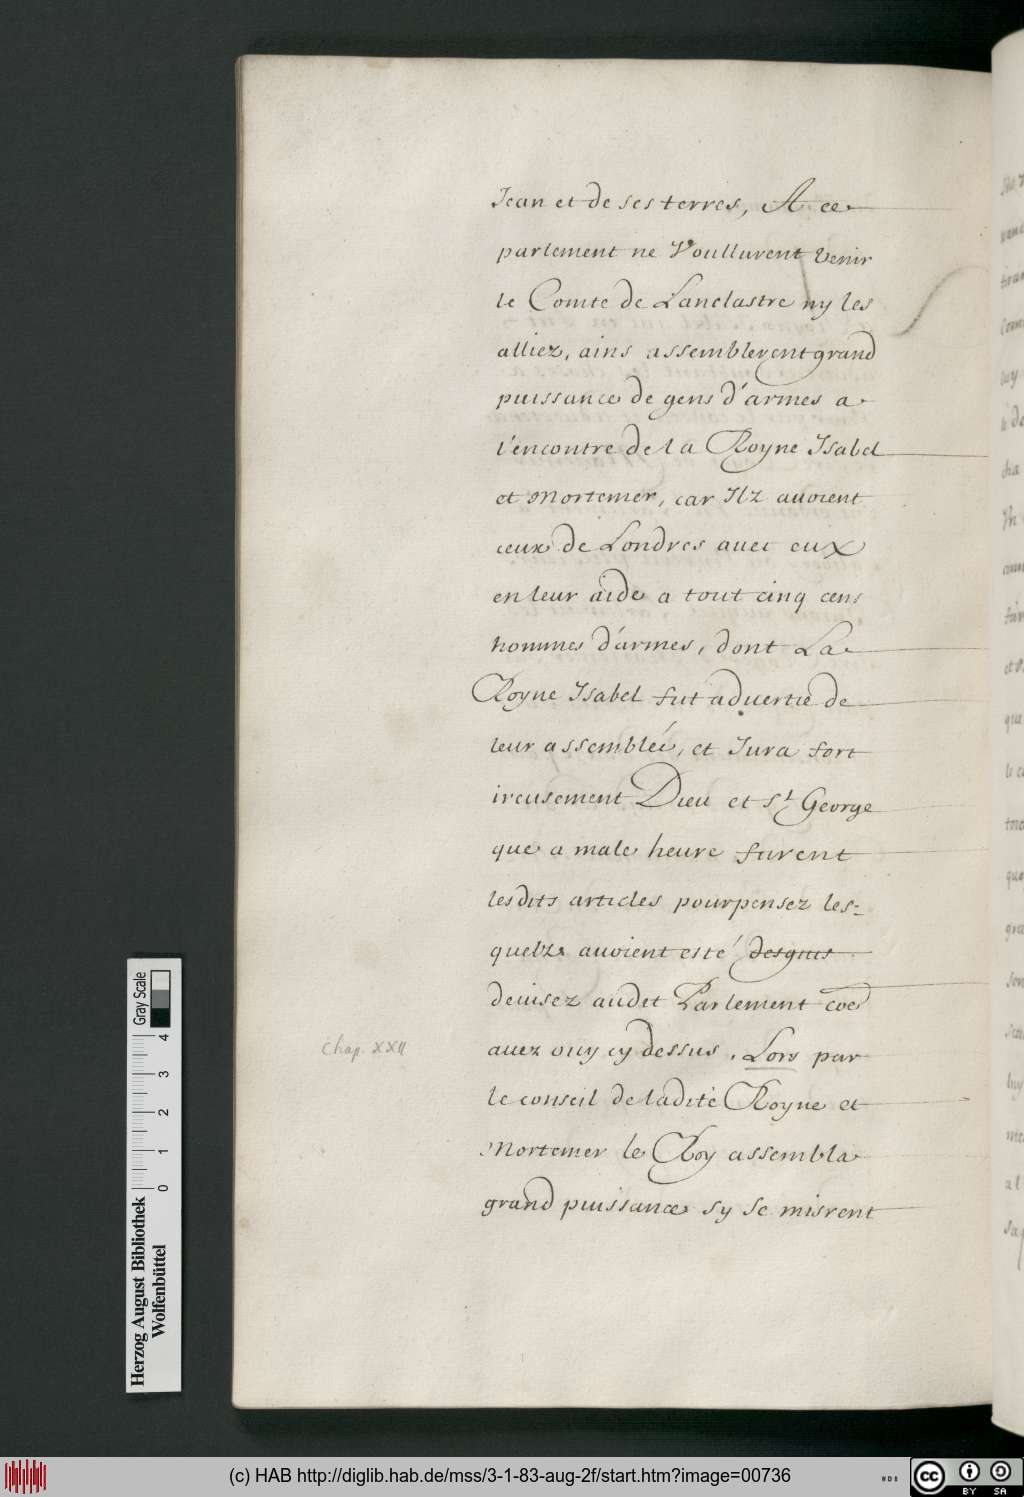 Jean et de ses terres, A ce
parlement ne Voullurent venir
le Comte de Lanclastre ny les
alliez, ains assemblerent grand
puissance de gens d'armes a
l'encontre de la Royne Isabel
et Mortemer, car Ilz avoient
ceux de Londres avec eux
en leur aide a tout cinq cens
hommes d'armes, dont La
Royne Isabel fut advertie de
leur assemblée, et Jura fort
ireusement Dieu et St George
que a male heure furent
lesdits articles pourpensez les=
quelz avoient esté desquis
devisez audit Parlement coe
Chap. XXII
avez ouy cy dessus. Lors par
le conseil de ladite Royne et
Mortemer le Roy assembla
grand puissance sy se misrent
Gray Scale
0 1 2 3 4
Herzog August Bibliothek
Wolfenbüttel
(c) HAB http://diglib.hab.de/mss/3-1-83-aug-2f/start.htm?image=00736
WDB
cc BY SA